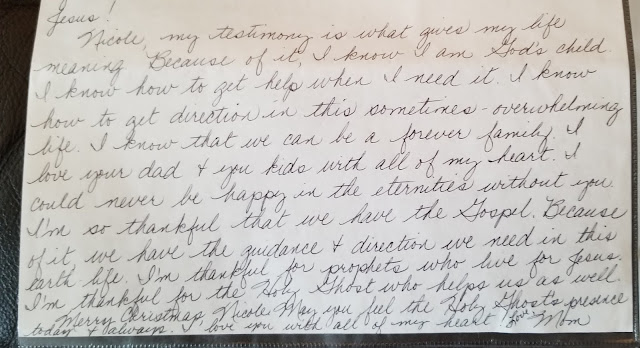 Jesus!
Nicole, my testimony is what gives my life
meaning. Because of it, I know I am God's child.
I know how to get help when I need it. I know
how to get direction in this sometimes-overwhelming
life. I know that we can be a forever family. I
love your dad & you kids with all of my heart. I
could never be happy in the eternities without you.
I'm so thankful that we have the Gospel. Because
of it we have the guidance & direction we need in this
earth life. I'm thankful for prophets who live for Jesus.
I'm thankful for the Holy Ghost who helps us as well.
Merry Christmas, Nicole. May you feel the Holy Ghost's presence
today & always. I love you with all of my heart! Love, Mom